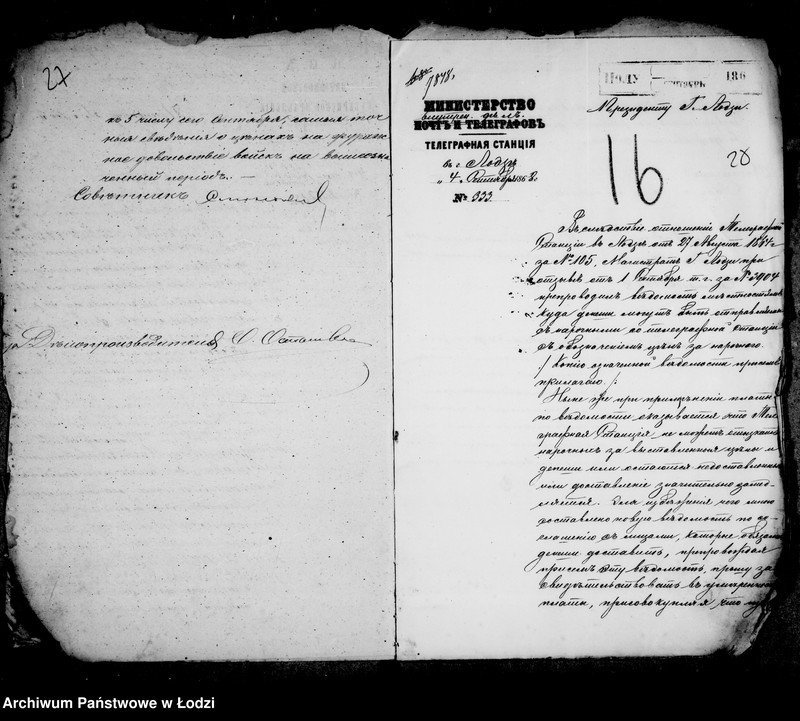 27
къ 5 числу сего Сентября, самыя точ-
ныя сведения о ценахъ на фураж-
ное довольствіе войскъ на вышеозна-
ченный періодъ. —
Советникъ
Делопроизводитель
1878.
МИНИСТЕРСТВО
внутрен. делъ.
ПОЧТЪ И ТЕЛЕГРАФОВЪ
ТЕЛЕГРАФНАЯ СТАНЦІЯ
въ г. Лодзи
„4„ Сентября 1868 г.
№ 333.
ПОЛУ 186
Президенту Г. Лодзи.
16
28
Вследствіе отношенія Телеграфной
Станціи въ Лодзи отъ 27 Августа 1867 г
за № 105, Магистратъ Г. Лодзи при
отзыве отъ 1 Октября т. г. за № 5904
препроводилъ ведомость местностямъ
куда депеши могутъ быть отправляемы
съ нарочными съ телеграфной Станціи
съ обозначеніемъ ценъ за нарочного.
/: Копію означенной ведомости при семъ
прилагаю. :/
Ныне же при примененіи платы
по ведомости оказывается что Теле-
графная Станція не можетъ отпускать
нарочныхъ за выставленныя цены и
депеши или остаются недоставленными
или доставленіе значительно заме-
дляется. Для избежанія чего мною
составлено новую ведомость по со-
глашенію съ лицами, которые обязаны
депеши доставить, препровождая
при семъ эту ведомость, прошу за-
свидетельствовать въ умеренности
платы, присовокупляя что
Archiwum Państwowe w Łodzi